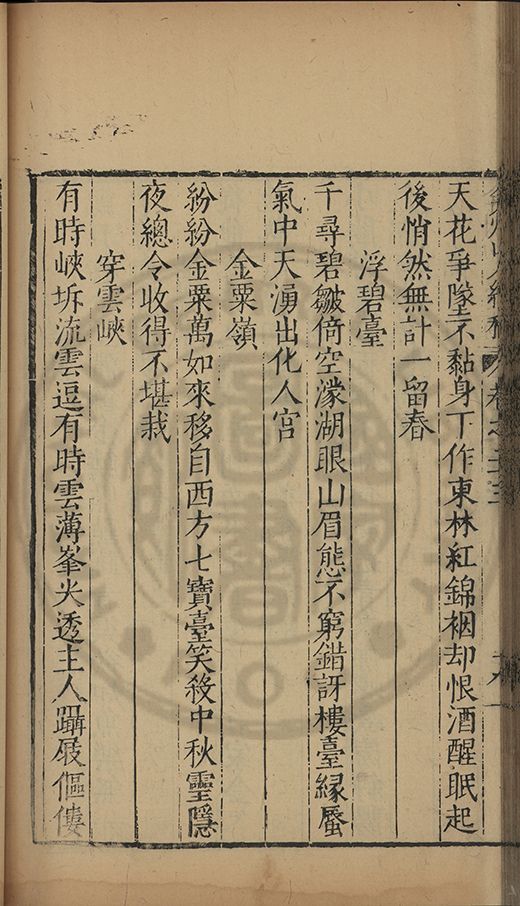 天花爭墜不黏身丁作東林紅錦裀却恨酒醒眠起
後悄然無計一留春
浮碧臺
千尋碧皺倚空濛湖眼山眉態不窮錯訝樓臺緣蜃
氣中天湧出化人宮
金粟嶺
紛紛金粟萬如來移自西方七寶臺笑殺中秋靈隱
夜總令收得不堪栽
穿雲峽
有時峽坼流雲逗有時雲薄峯尖透主人躡屐傴僂